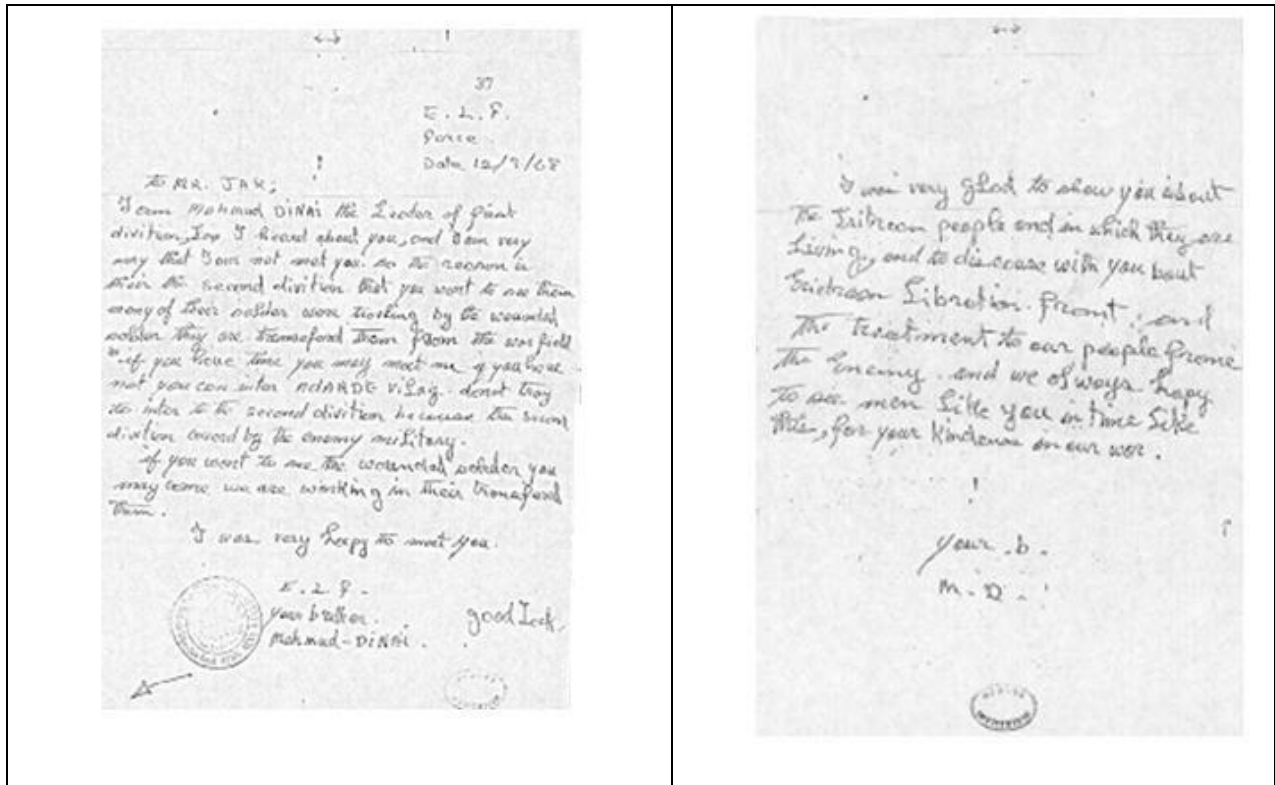 37
E. L. F.
Force
Date 12/9/68
to MR. JAK;
I am Mahmud DiNAi the Leader of
division, I heard about you, and I am very
that I am not met you. so the reason is
the second division that you want to see them
many of their solder were by the wounded
solder they are transeferd them from the war field
"if you have time you may meet me if you have
not you can inter AdARDE Vilag. donot tray
to inter to the second division because the
division by the enemy military.
if you want to see the wounded solder you
may come we are working in their transeferd
them.
I was very happy to meet you.
E. L. F.
your brother.
Mahmud-DiNAi.
good Luck.
I was very glad to show you about
the people and in which they are
Living, and to with you bout
Libration Front, and
the treatment to our people
the Enemy. and we always hapy
to see men Like you in time Like
this, for your in our wor.
!
your .b.
M. D.